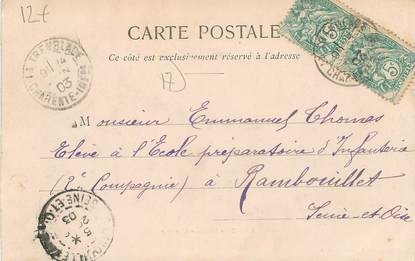 12f
CARTE POSTALE
Ce côté est exclusivement réservé à l'adresse
LA TREMBLADE
03
CHARENTE-INFRE
17
Monsieur Emmanuel Thomas
Elève à l'Ecole préparatoire d'Infanterie
(2e Compagnie) à Rambouillet
Seine-et-Oise
5
03
SEINE-ET-O